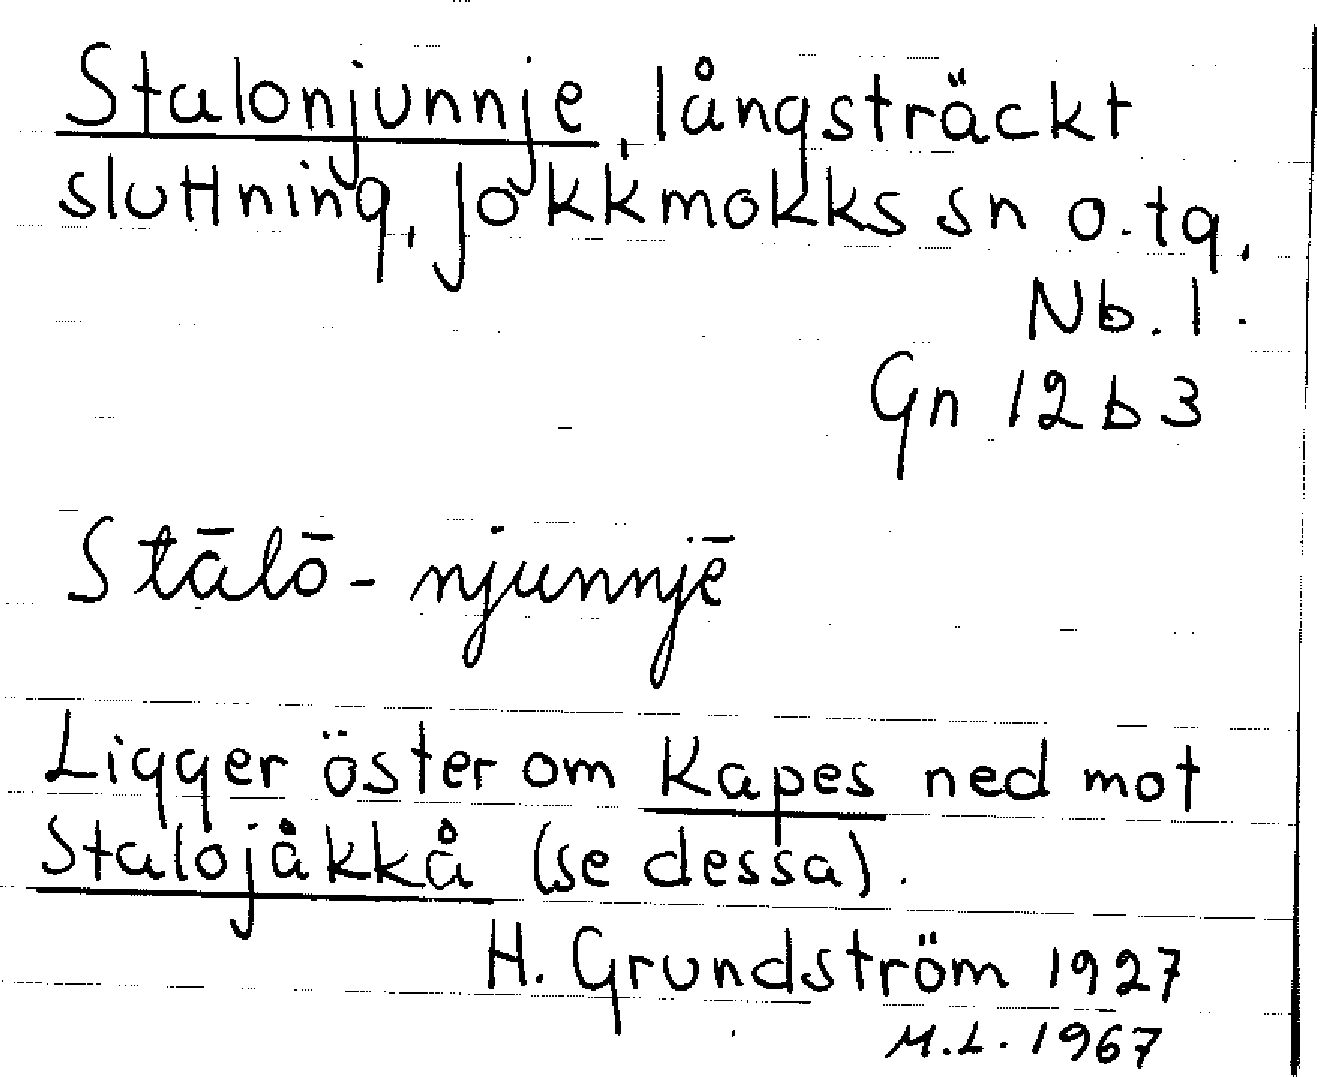 Stalonjunnje, långsträckt
sluttning, Jokkmokks sn o. tg.
Nb. l.
Gn 12 b 3
Stālō-njunnjē
Ligger öster om Kapes ned mot
Stalojåkkå (se dessa).
H. Grundström 1927
M.L. 1967